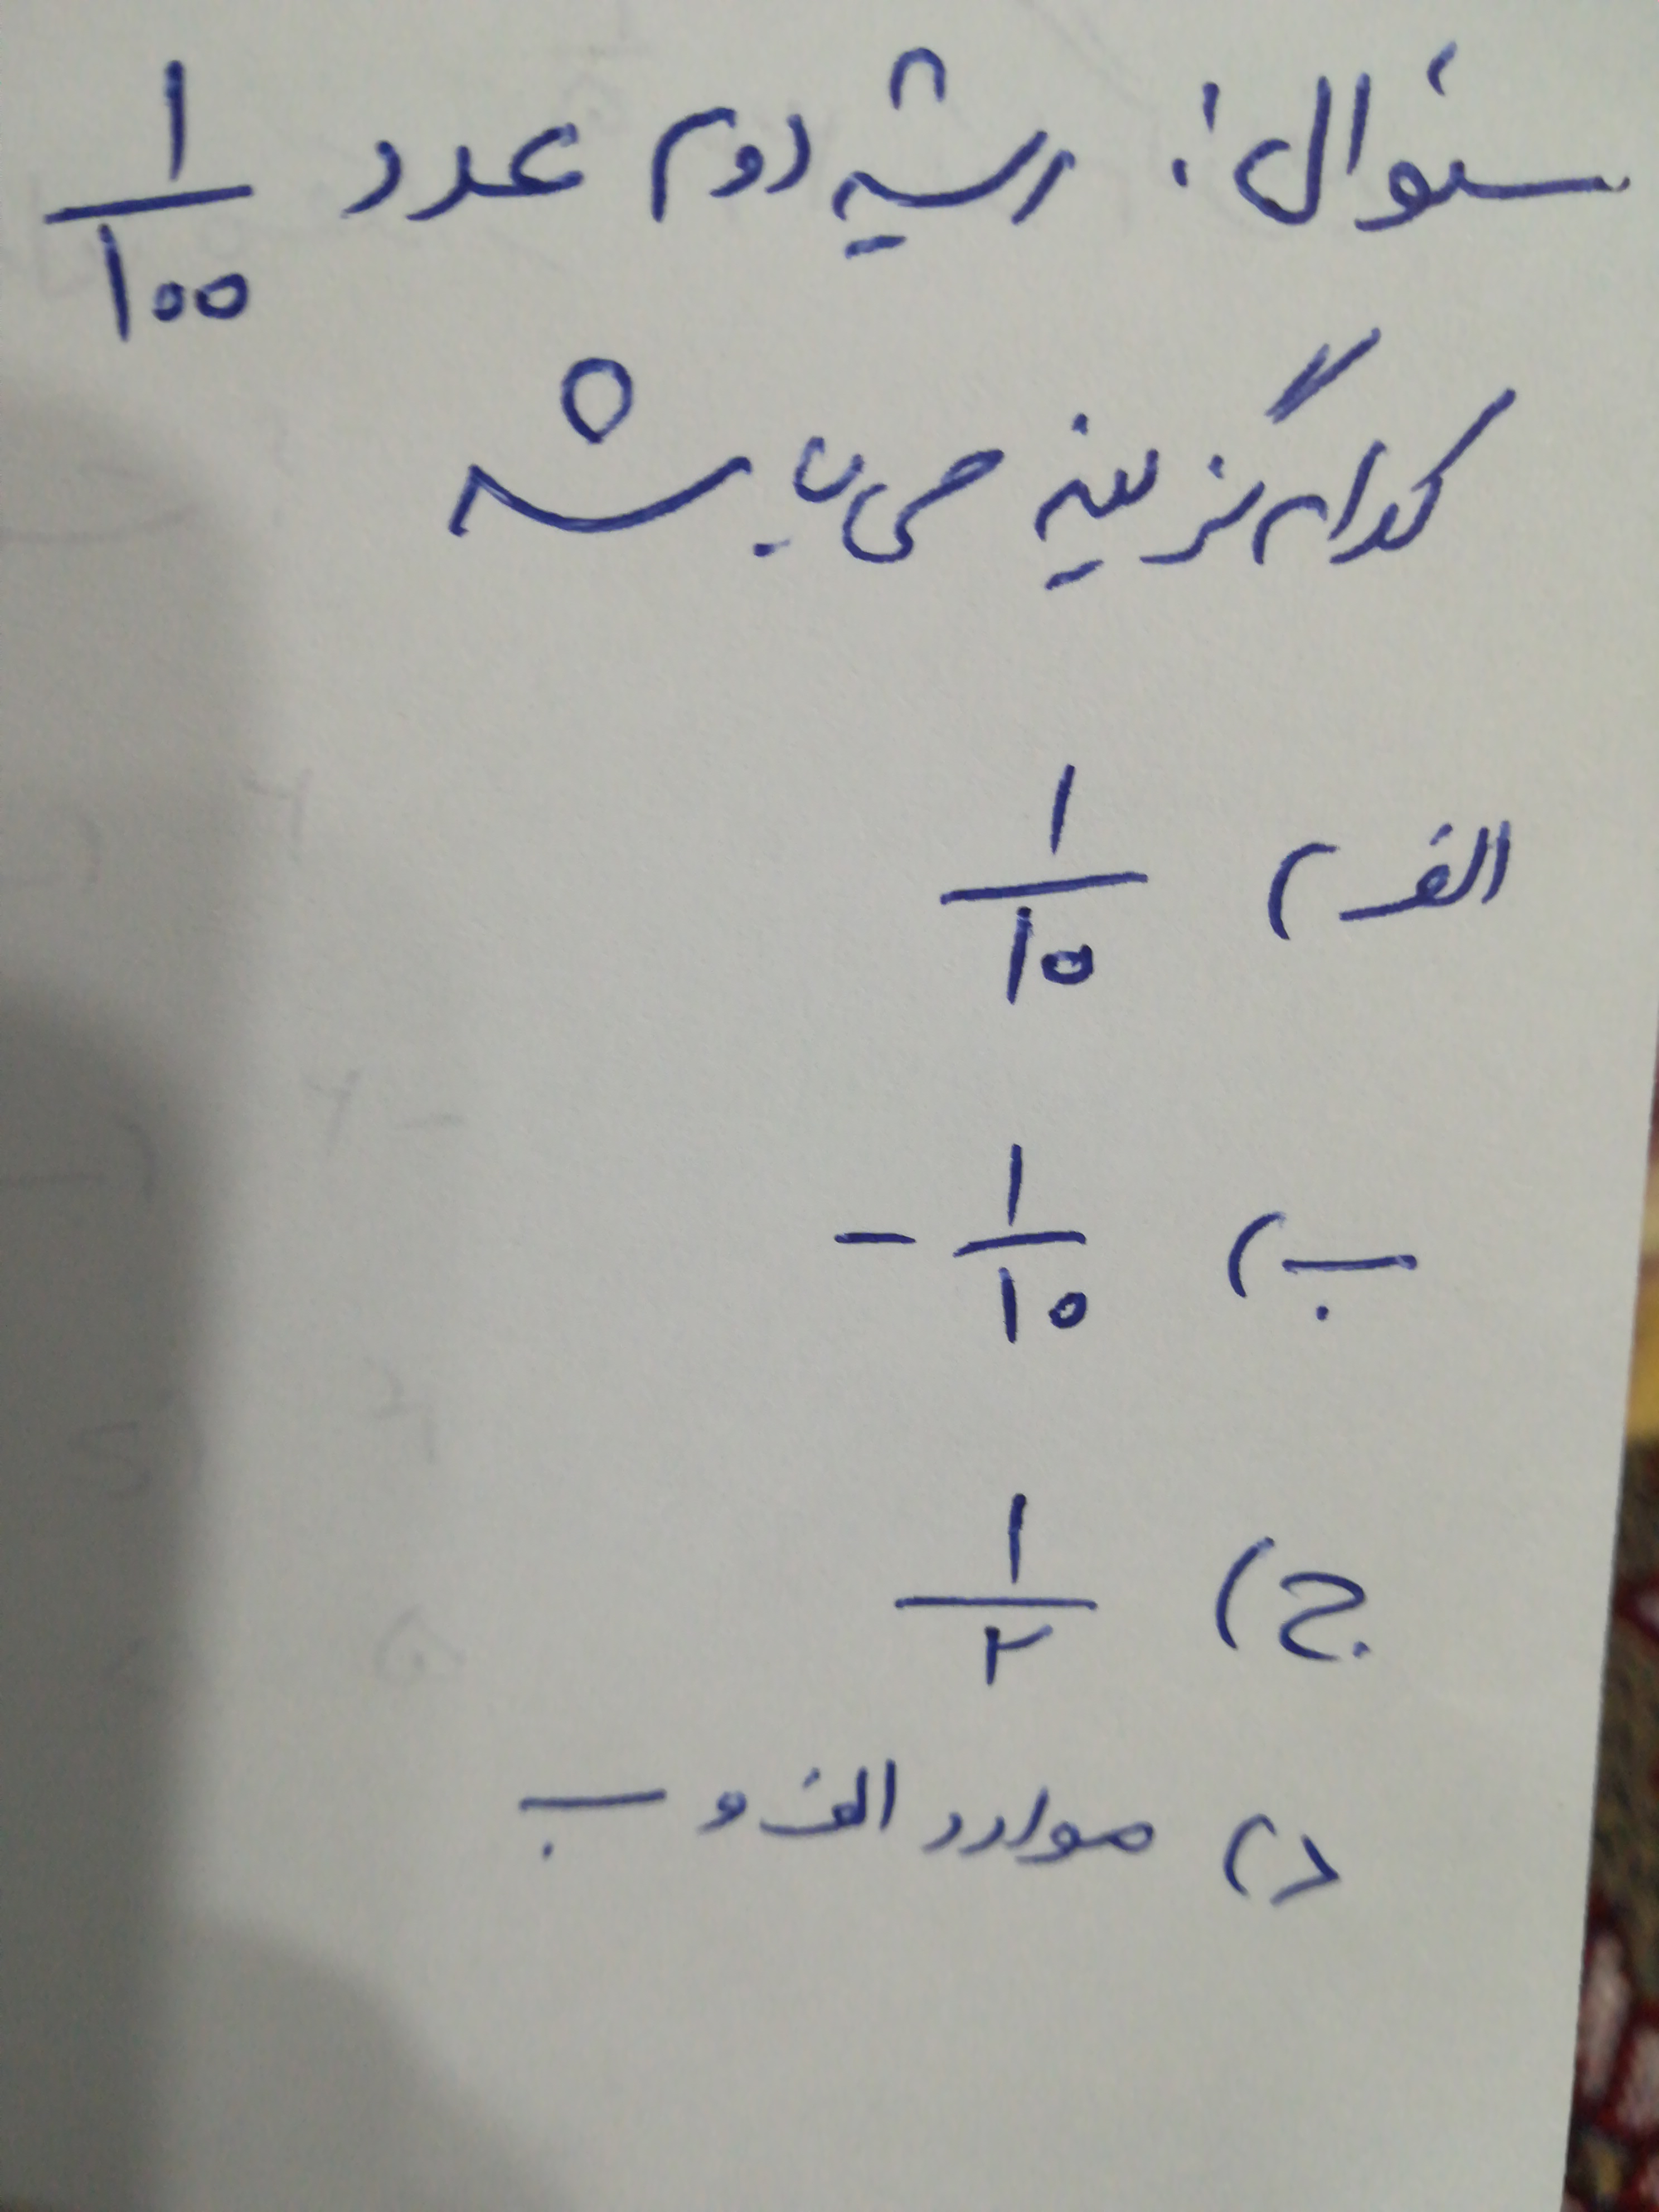 سئوال: ریشه دوم عدد ۱/۱۰۰
کدام گزینه می باشد
الف) ۱/۱۰
ب) -۱/۱۰
ج) ۱/۲
د) موارد الف و ب